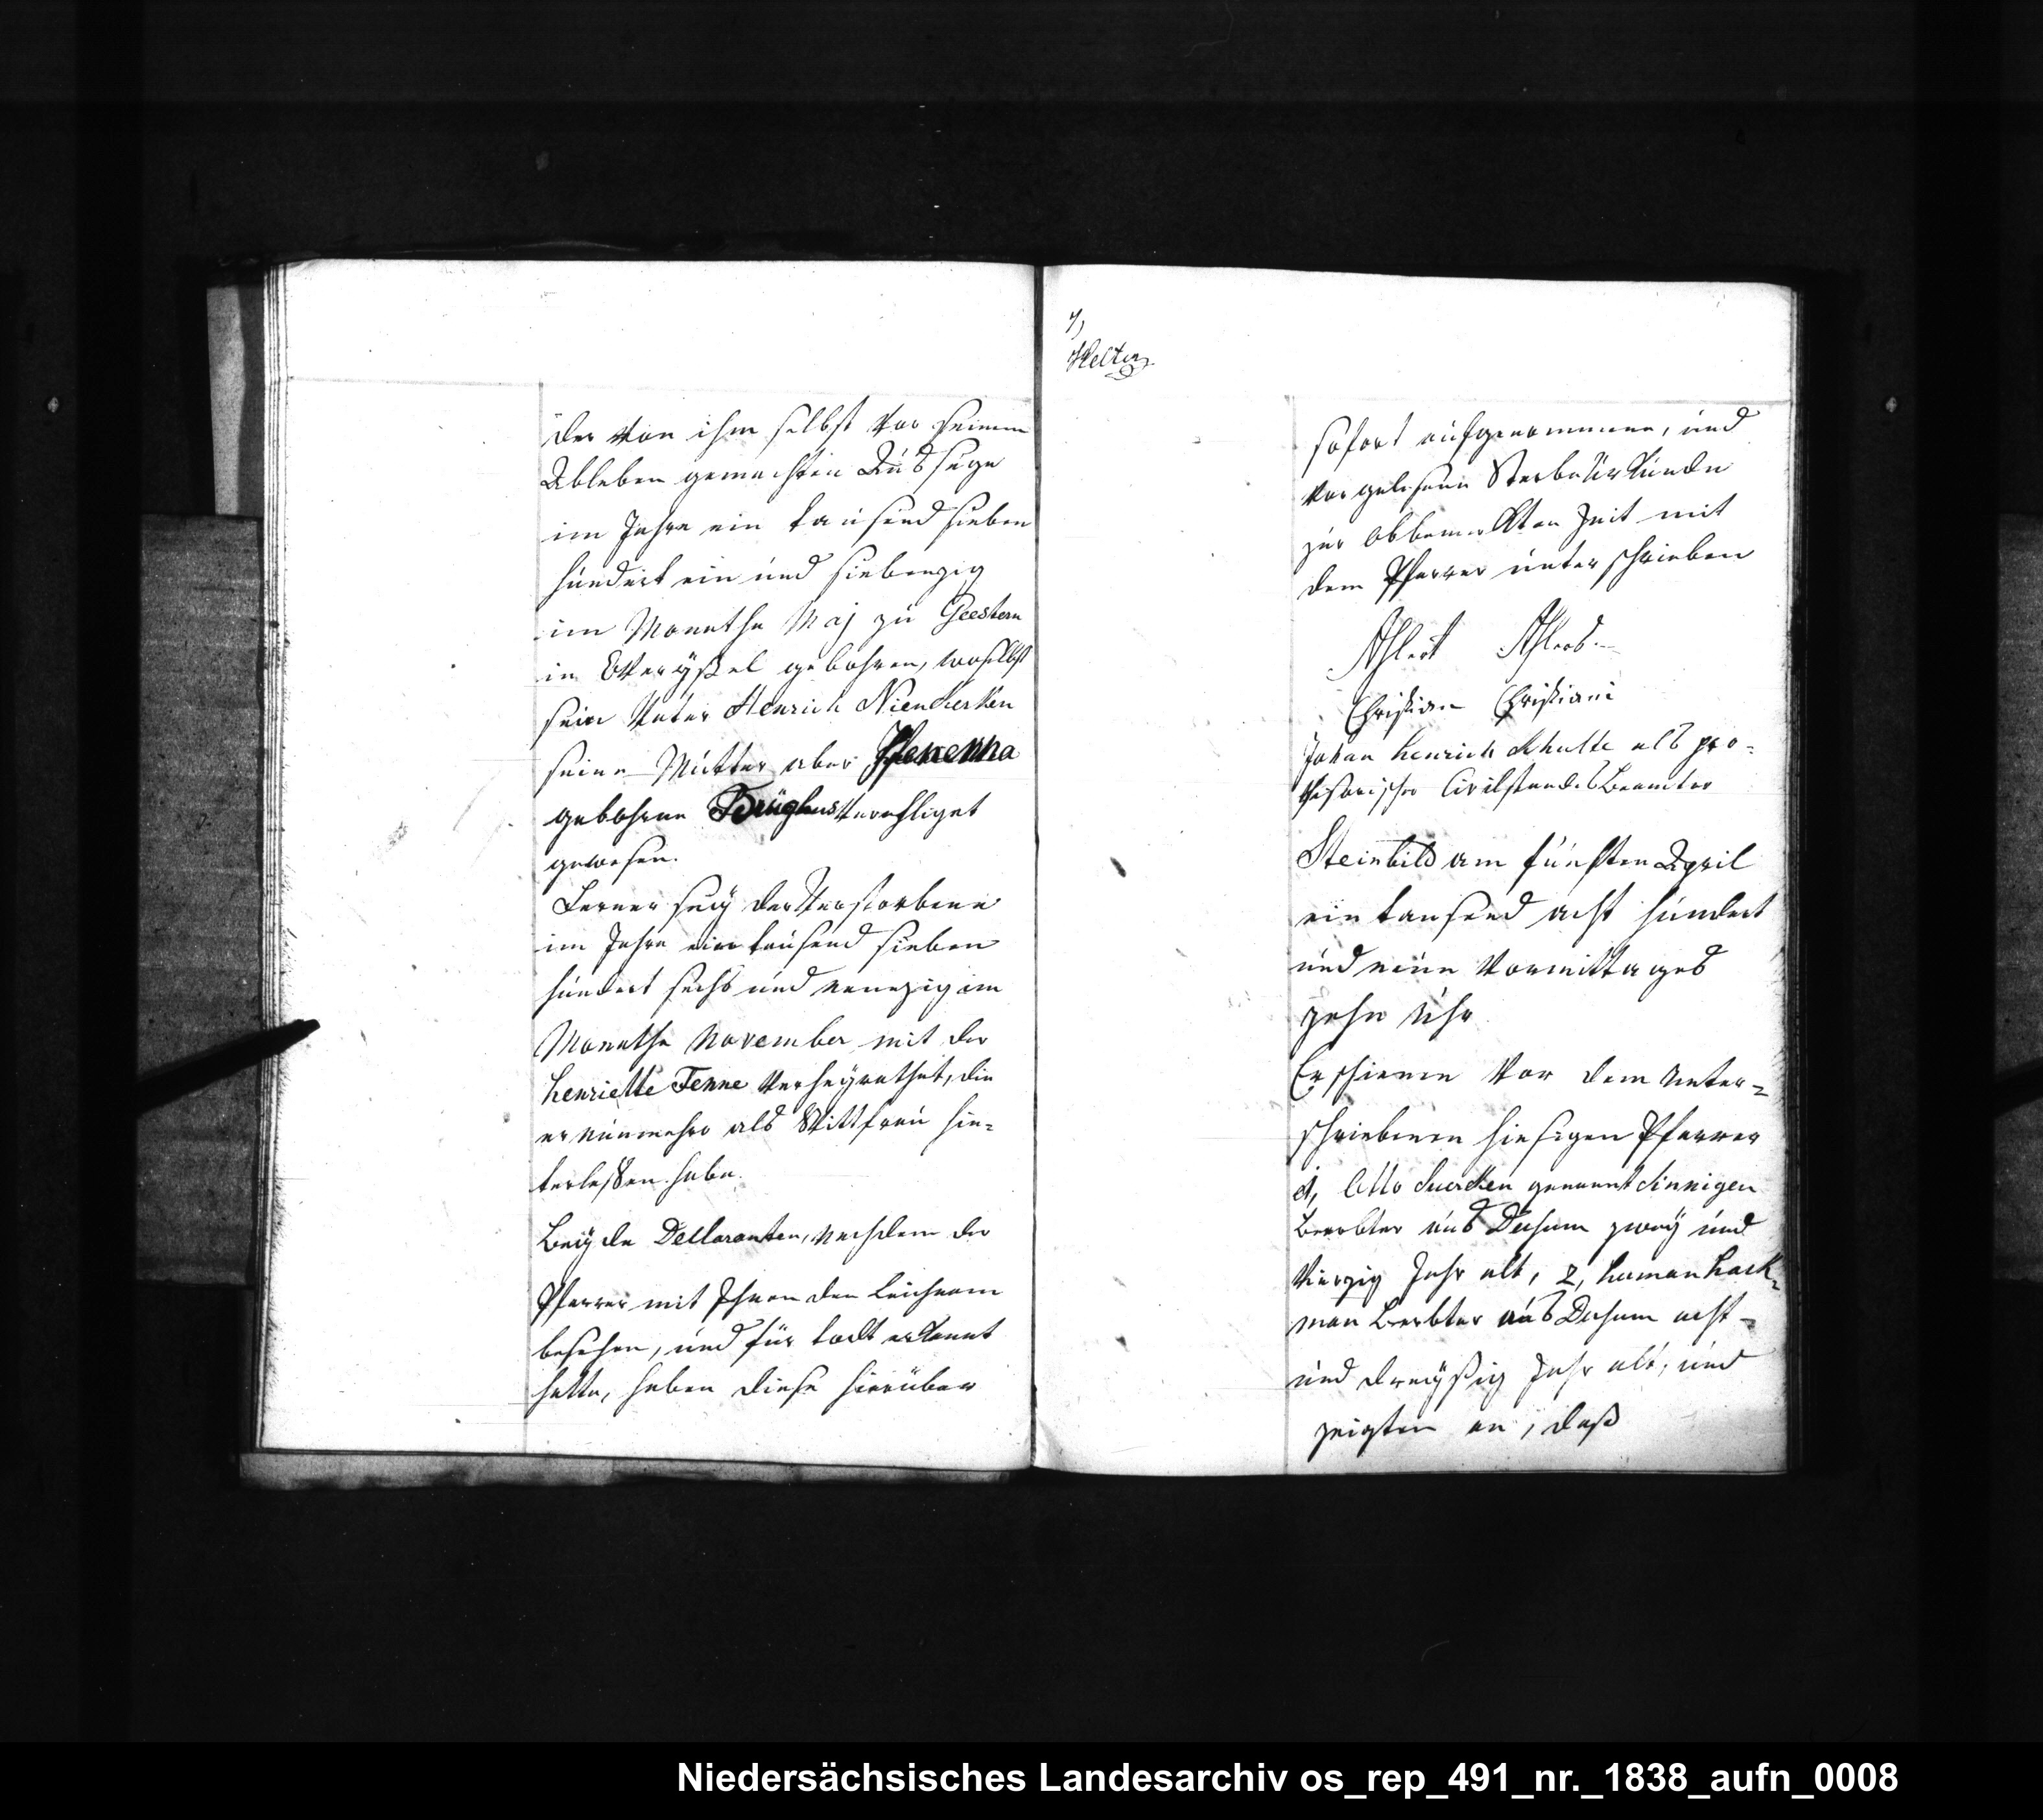 der von ihm selbst vor seinem
Ableben gemachten Aussage
im Jahre ein tausend sieben
hundert ein und siebenzig
im Monathe Maj zu Geestern
in Overyßel gebohren, woselbst
sein Vater Henrich Nienkerken
seine Mutter aber
gebohrne verehliget
gewesen.
Ferner sey der Verstorbene
im Jahre ein tausend sieben
hundert sechs und neunzig im
Monathe November mit der
Henriette Fenne verheyrathet, die
er nunmehro als Wittfrau hin-
terlaßen habe.
Beyde Declaranten, nachdem der
Pfarrer mit Ihnen den Leichnam
besehen, und für todt erkannt
hatte, haben diese hierüber
sofort aufgenommene, und
vorgelesene Sterbeurkunde
zur obbemerkten Zeit mit
dem Pfarrer unterschrieben
Ahlert Ahlers
Christian Christiani
Johan Henrich Schulte als pro-
visorischer Civilstandes Beamter
Steinbild am fünften April
ein tausend acht hundert
und neun Vormittages
zehn Uhr
Erschienen vor dem unter-
schriebenen hiesigen Pfarrer
1, Otto genannt Sinnigen
Beerbter aus Dersum zwey und
vierzig Jahr alt, 2, Herman Hack-
man Beerbter aus Dersum acht-
und dreyßig Jahr alt, und
zeigten an, daß
Niedersächsisches Landesarchiv os_rep_491_nr._1838_aufn_0008